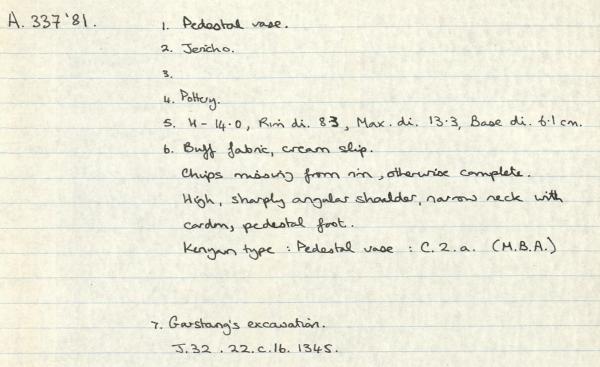 A. 337'81.
1. Pedestal vase.
2. Jericho.
3.
4. Pottery.
5. H - 14.0, Rim di. 8.3, Max. di. 13.3, Base di. 6.1 cm.
6. Buff fabric, cream slip.
Chips missing from rim, otherwise complete.
High, sharply angular shoulder, narrow neck with
cordon, pedestal foot.
Kenyon type : Pedestal vase : C.2.a. (M.B.A.)
7. Garstang's excavation.
J.32 . 22.c.16. 1345.